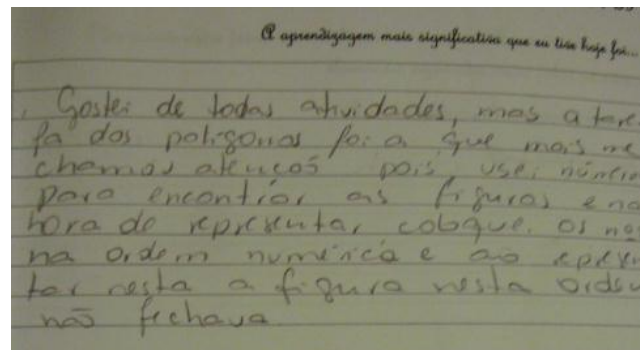 A aprendizagem mais significativa que eu tive hoje foi...
Gostei de todas atividades, mas a tare
fa dos poligonos foi a que mais me
chamou atenção pois usei
para encontrar as figuras e na
hora de representar coloquei os
na ordem numérica e ao
tar nesta a figura nesta
não fechava.